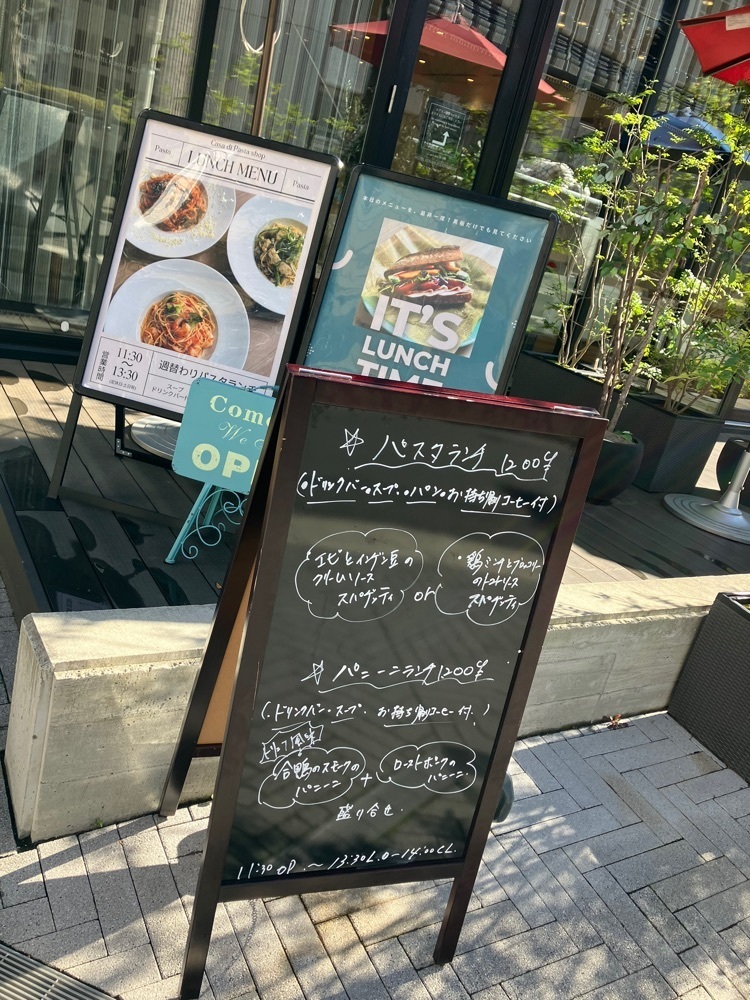 Casa di Pasta shop
Pasta
LUNCH MENU
Pasta
営業時間
11:30
～
13:30
週替わりパスタランチ
スープ
ドリンクバー
本日のメニューを、是非一度！黒板だけでも見てください
IT'S
LUNCH
TIME
Come
We
OP
☆パスタランチ 1200¥
(・ドリンクバー・スープ・パン・お持ち帰りコーヒー付)
エビとインゲン豆の
クリームソース
スパゲッティ
or
・鶏ミンチとブロッコリー
のトマトソース
スパゲッティ
☆パニーニランチ 1200¥
(・ドリンクバー・スープ・お持ち帰りコーヒー付・)
合鴨のスモークの
パニーニ
+
ローストポークの
パニーニ
盛り合せ
11:30 OP.～13:30 L.O-14:00 CL.